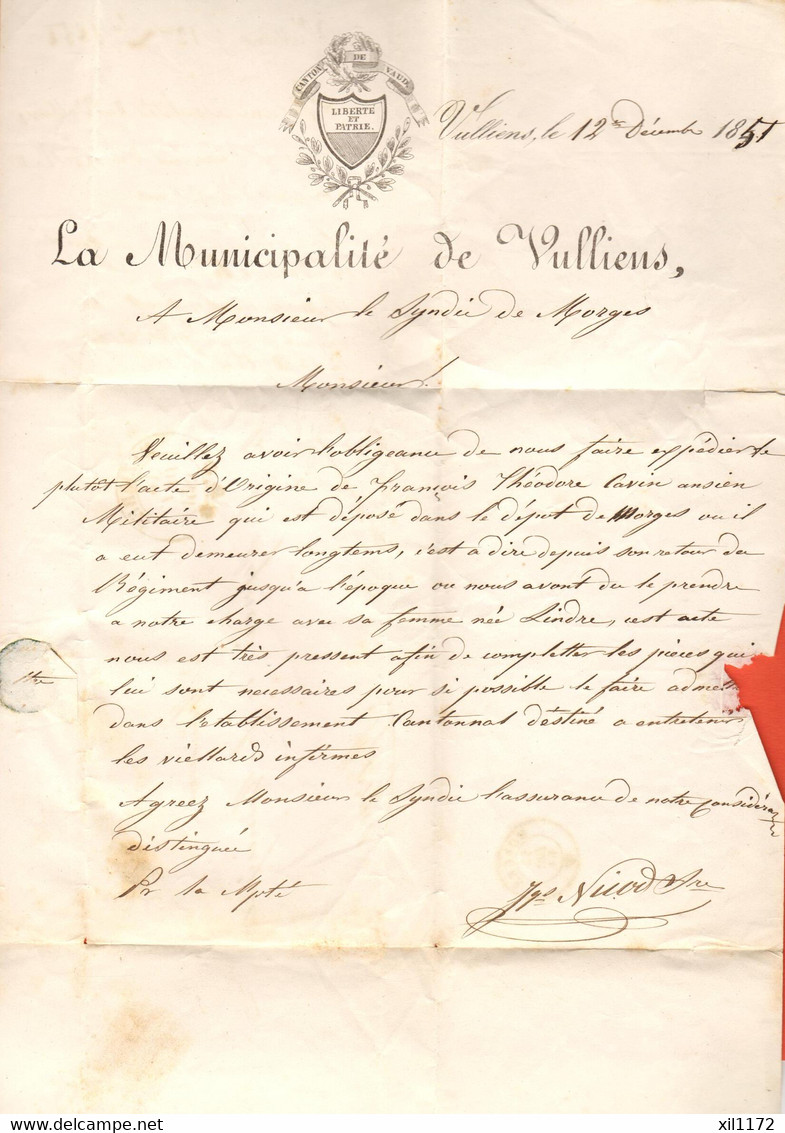 CANTON DE VAUD
LIBERTE
ET
PATRIE.
Vulliens, le 12me Décembre 1851
La Municipalité de Vulliens,
A Monsieur le Syndic de Morges
Monsieur!
Veuillez avoir l'obligeance de nous faire expédier le
plutôt l'acte d'Origine de François Théodore Cavin ansien
Militaire qui est déposé dans le dépot de Morges ou il
a eut demeurer longtems, c'est a dire depuis son retour du
Régiment jusqu'a l'époque ou nous avont du le prendre
a notre charge avec sa femme née Lindre, cest acte
nous est très pressent afin de completter les pieces qui
lui sont necessaires pour si possible le faire adme
dans l'etablissement Cantonnal déstiné a entretenir
les viellards infirmes
Agreez Monsieur le Syndic l'assurance de notre Considéra
distinguée
Pr la Mpté
Nicod Sre
delcampe.net
xil1172